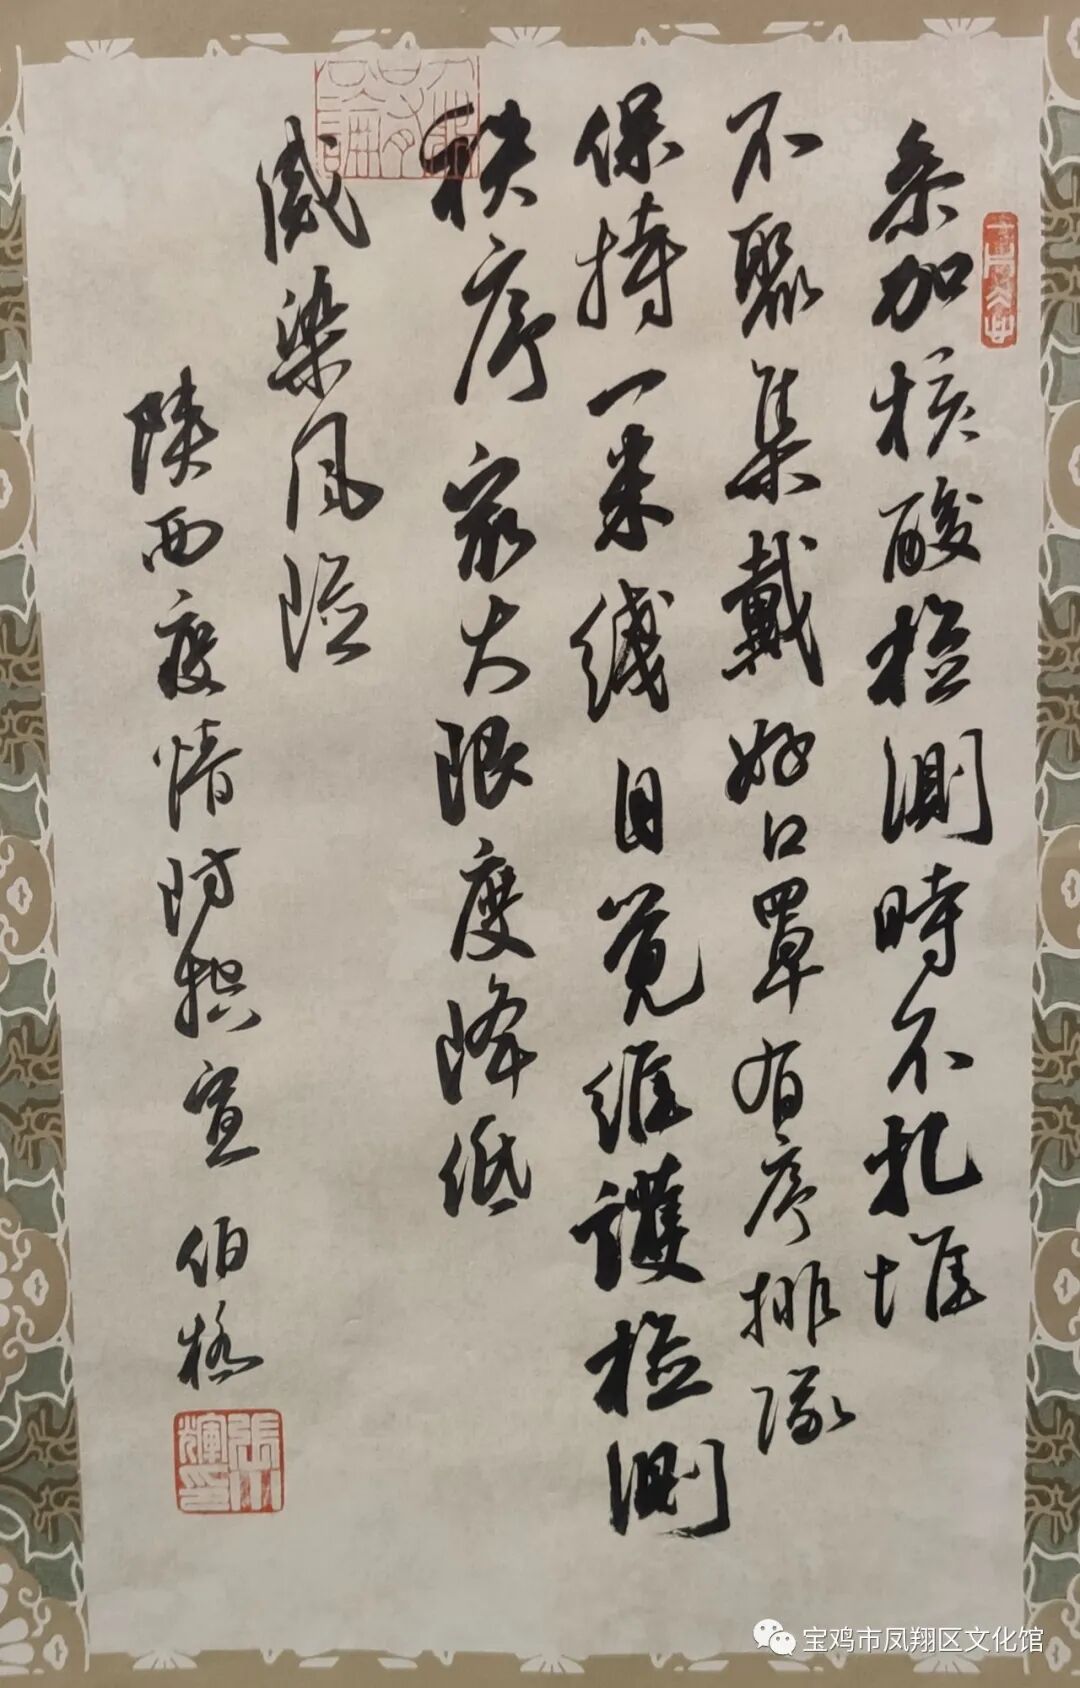 参加核酸检测時不扎堆
不聚集戴好口罩有序排隊
保持一米线自觉維護检测
秩序最大限度降低
感染風险
陕西疫情防控宣 伯格
宝鸡市凤翔区文化馆